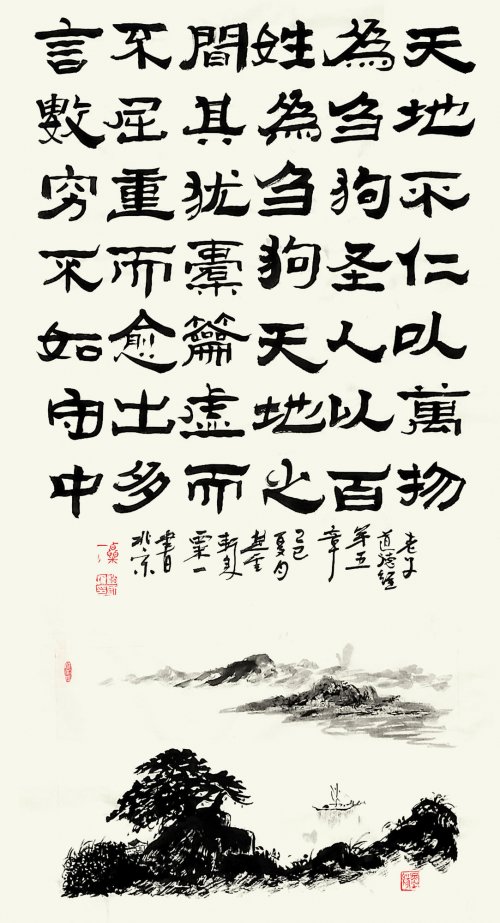 天地不仁以萬物
為刍狗圣人以百
姓為刍狗天地之
間其犹橐籥虛而
不屈重而愈出多
言數穷不如守中
老子
道德經
第五
章
夏月
一
書
北京